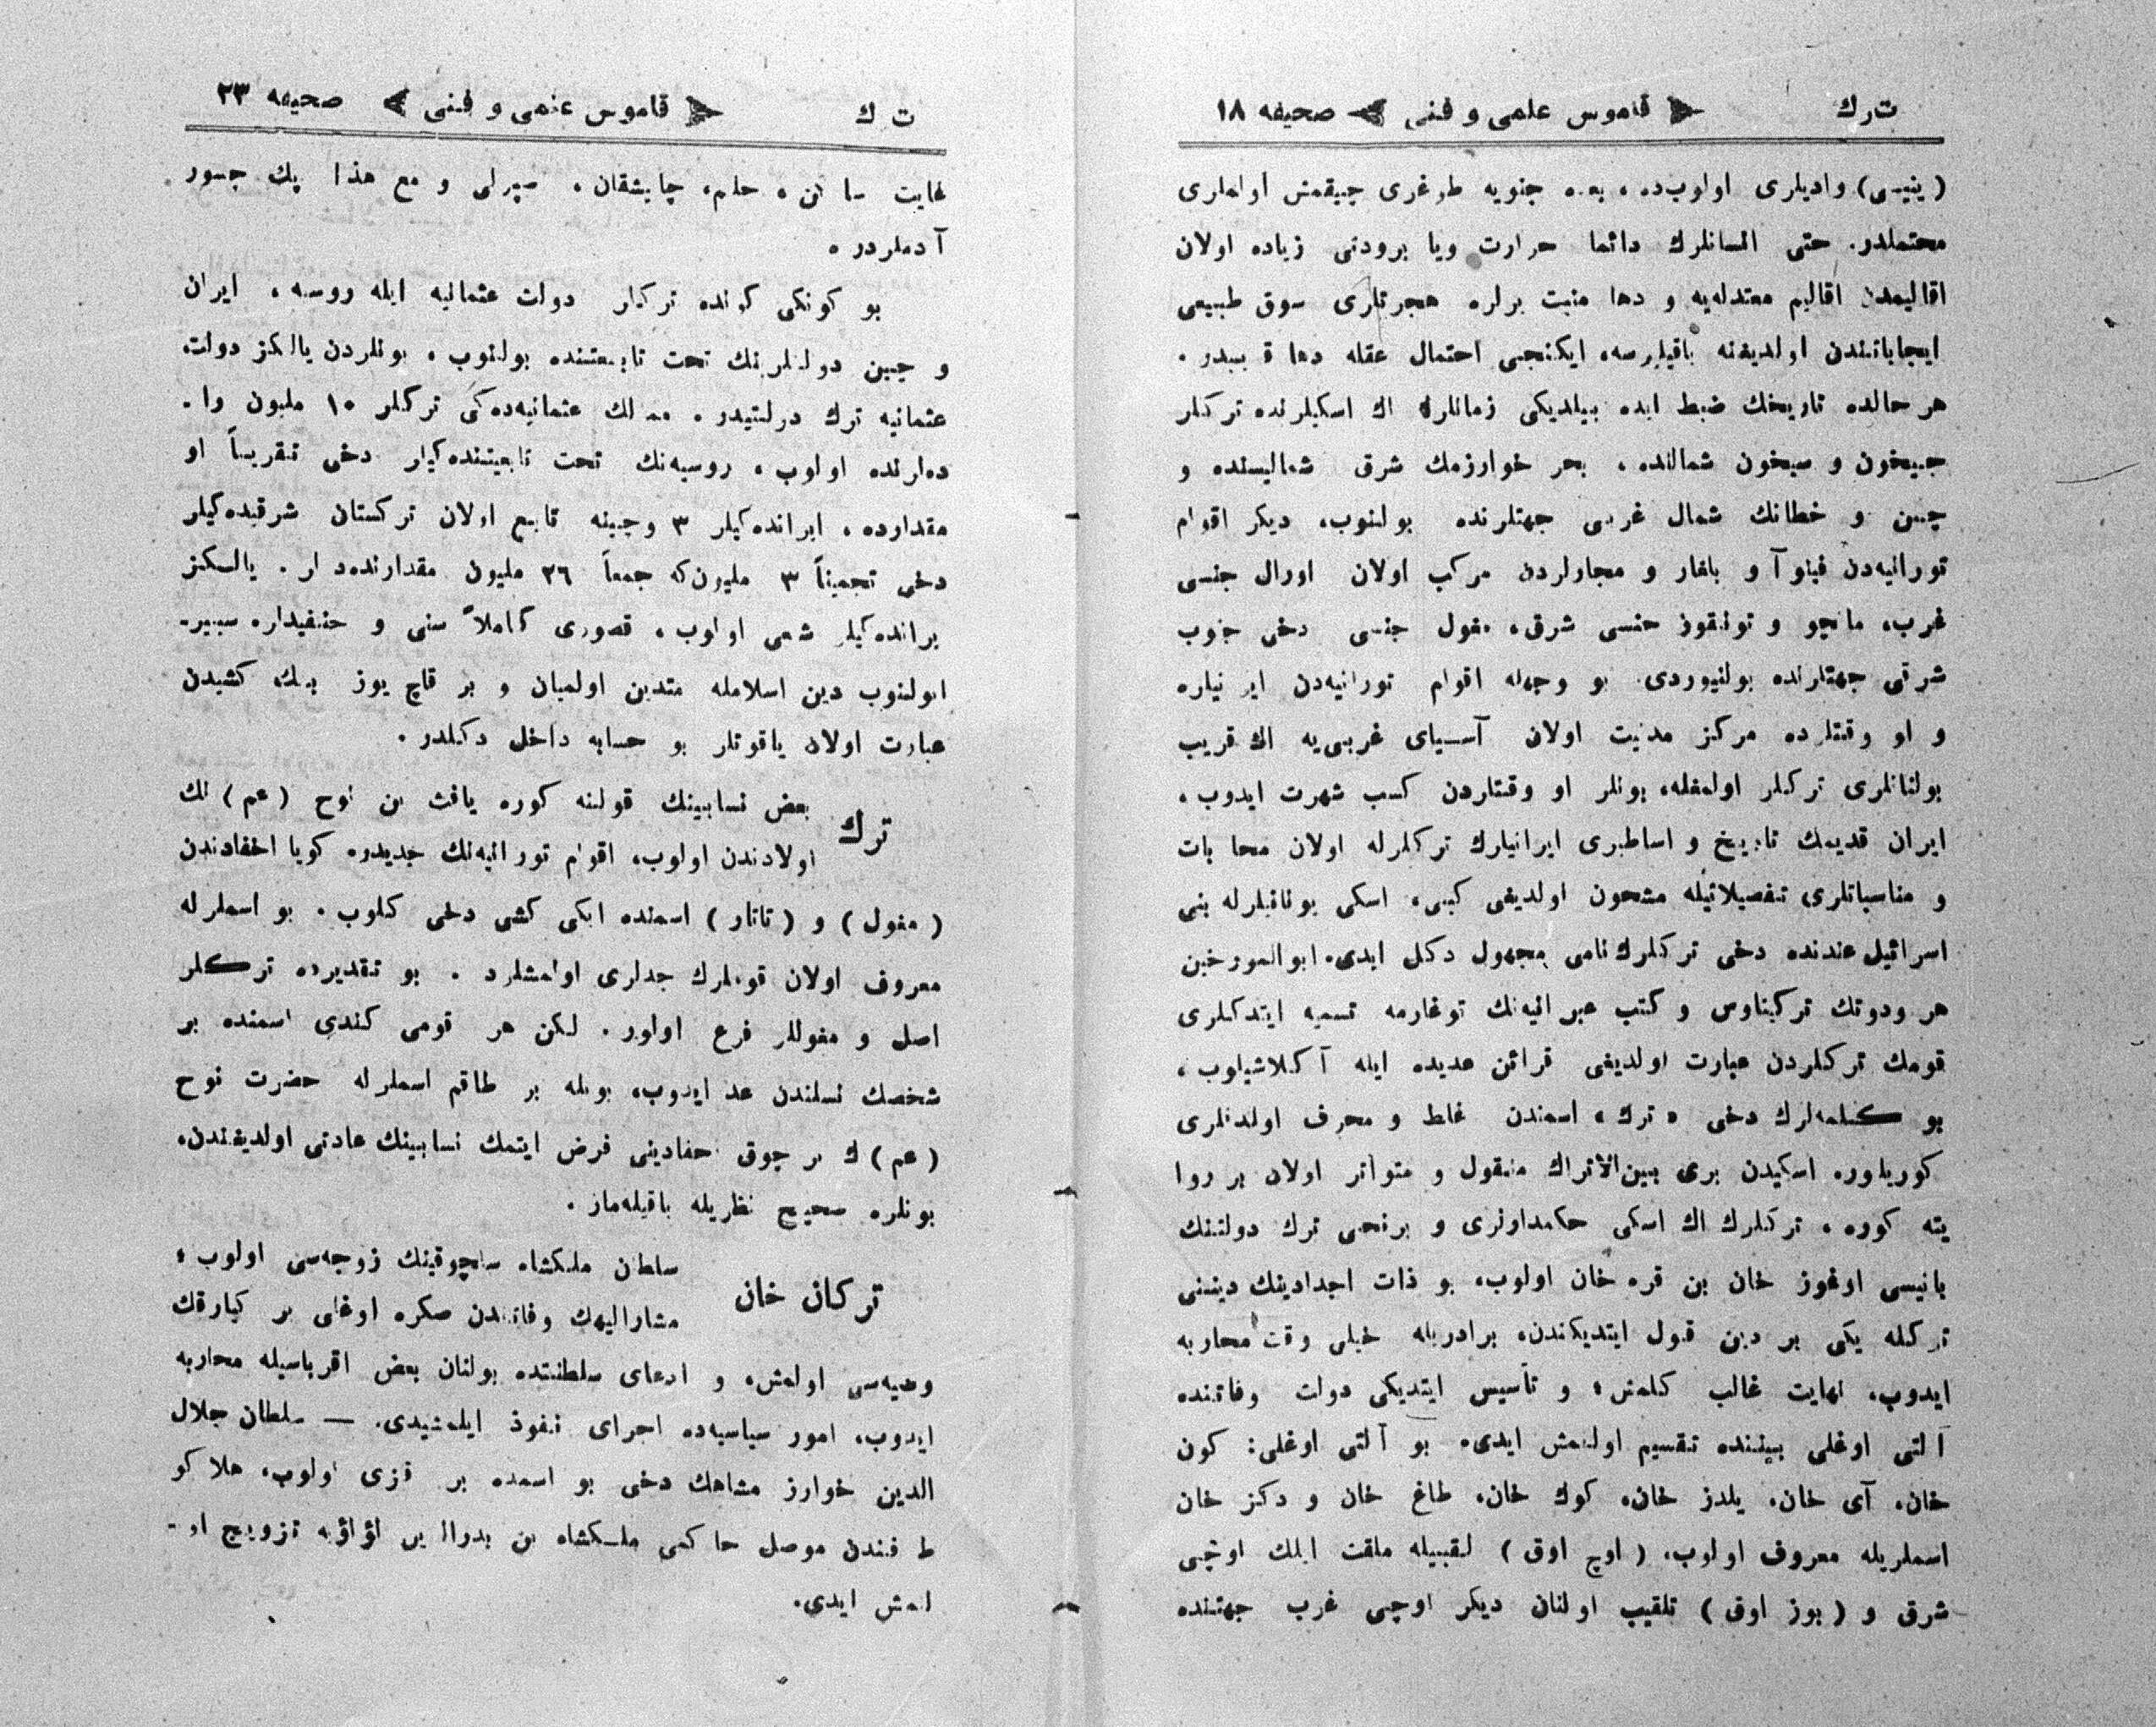 ت رك قاموس علمی و فنی صحیفه ١٨
(ینیسی) وادیلری اولوب‌ده ، بعده جنوبه طوغری چیقمش اولملری
محتملدر. حتی انسانلرك دائما حرارت ویا برودتی زیاده اولان
اقالیمدن اقالیم معتدله‌یه و دها منبت یرلره هجرتلری سوق طبیعی
ایجاباتندن اولدیغنه باقیلیرسه، ایكنجی احتمال عقله دها قریبدر .
هر حالده تاریخك ضبط ایده بیلدیكی زمانلرك اك اسكیلرنده تركلر
جیحون و سیحون شمالنده ، بحر خوارزمك شرق شمالیسنده و
چین و خطانك شمال غربی جهتلرنده بولنوب، دیكر اقوام
تورانیه‌دن فینوآ و بلغار و مجارلردن مركب اولان اورال جنسی
غرب، مانچو و تونقوز جنسی شرق، مغول جنسی دخی جنوب
شرقی جهتلرنده بولنیوردی. بو وجهله اقوام تورانیه‌دن ایرانیلره
و او وقتلرده مركز مدنیت اولان آسیای غربی‌یه اك قریب
بولنانلری تركلر اولمغله، بونلر او وقتلردن كسب شهرت ایدوب ،
ایران قدیمك تاریخ و اساطیری ایرانیلرك تركلرله اولان محاربات
و مناسباتلری تفصیلاتیله مشحون اولدیغی كبی، اسكی یونانیلرله بنی
اسرائیل عندنده دخی تركلرك نامی مجهول دكل ایدی. ابوالمورخین
هرودوتك تركیتاوس و كتب عبرانیه‌نك توغارمه تسمیه ایتدكلری
قومك تركلردن عبارت اولدیغی قرائن عدیده ایله آكلاشیلوب ،
بو كلمه‌لرك دخی « ترك » اسمندن غلط و محرف اولدقلری
كوریلیور. اسكیدن بری بین‌الاتراك منقول و متواتر اولان بر روا
یته كوره ، تركلرك اك اسكی حكمدارلری و برنجی ترك دولتنك
بانیسی اوغوز خان بن قره خان اولوب، بو ذات اجدادینك دیننی
تركله یكی بر دین قبول ایتدیكندن، برادریله خیلی وقت محاربه
ایدوب، نهایت غالب كلمش، و تأسیس ایتدیكی دولت وفاتنده
آلتی اوغلی بیننده تقسیم اولنمش ایدی. بو آلتی اوغلی: كون
خان، آی خان، یلدز خان، كوك خان، طاغ خان و دكز خان
اسملریله معروف اولوب، (اوچ اوق) لقبیله ملقب ایلك اوچی
شرق و (بوز اوق) تلقیب اولنان دیكر اوچی غرب جهتنده
ت ك قاموس علمی و فنی صحیفه ٢٣
غایت ساكن، حلیم، چالیشقان، صبرلی و مع هذا پك جسور
آدملردر .
بو كونكی كونده تركلر دولت عثمانیه ایله روسیه ، ایران
و چین دولتلرینك تحت تابعیتنده بولنوب ، بونلردن یالكز دولت
عثمانیه ترك دولتیدر . ممالك عثمانیه‌ده‌كی تركلر ١٠ ملیون را .
ده‌لرنده اولوب ، روسیه‌نك تحت تابعیتنده‌كیلر دخی تقریباً او
مقدارده ، ایرانده‌كیلر ٣ و چینه تابع اولان تركستان شرقیده‌كیلر
دخی تخمیناً ٣ ملیون‌كه جمعاً ٢٦ ملیون مقدارنده‌درلر . یالكز
یرانده‌كیلر شیعی اولوب ، قصوری كاملاً سنی و حنفیدلر. سیبیر-
ابولنوب دین اسلامله متدین اولمیان و بر قاچ یوز بیك كشیدن
عبارت اولان یاقوتلر بو حسابه داخل دكلدر .
ترك بعض نسابینك قولنه كوره یافث بن نوح (عم) ك
اولادندن اولوب، اقوام تورانیه‌نك جدیدر. كویا احفادندن
(مغول) و (تاتار) اسمنده ایكی كشی دخی كلوب . بو اسملرله
معروف اولان قوملرك جدلری اولمشلرد . بو تقدیرده تركلر
اصل و مغوللر فرع اولور . لكن هر قومی كندی اسمنده بر
شخصك نسلندن عد ایدوب، بویله بر طاقم اسملرله حضرت نوح
(عم) ك بر چوق احفادینی فرض ایتمك نسابینك عادتی اولدیغندن،
بونلره صحیح نظریله باقیله‌ماز .
تركان خان سلطان ملكشاه سلجوقینك زوجه‌سی اولوب ،
مشارالیهك وفاتندن صكره اوغلی بر كیارقك
وصیه‌سی اولمش، و ادعای سلطنتده بولنان بعض اقرباسیله محاربه
ایدوب، امور سیاسیه‌ده اجرای نفوذ ایلمشیدی. — سلطان جلال
الدین خوارز مشاهك دخی بو اسمده بر قزی اولوب، هلاكو
ط فندن موصل حاكمی ملكشاه بن بدرالدین لؤلؤیه تزویج او -
لنمش ایدی.